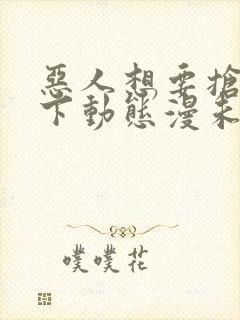 惡人想要搶
下動態漫未
噗噗花